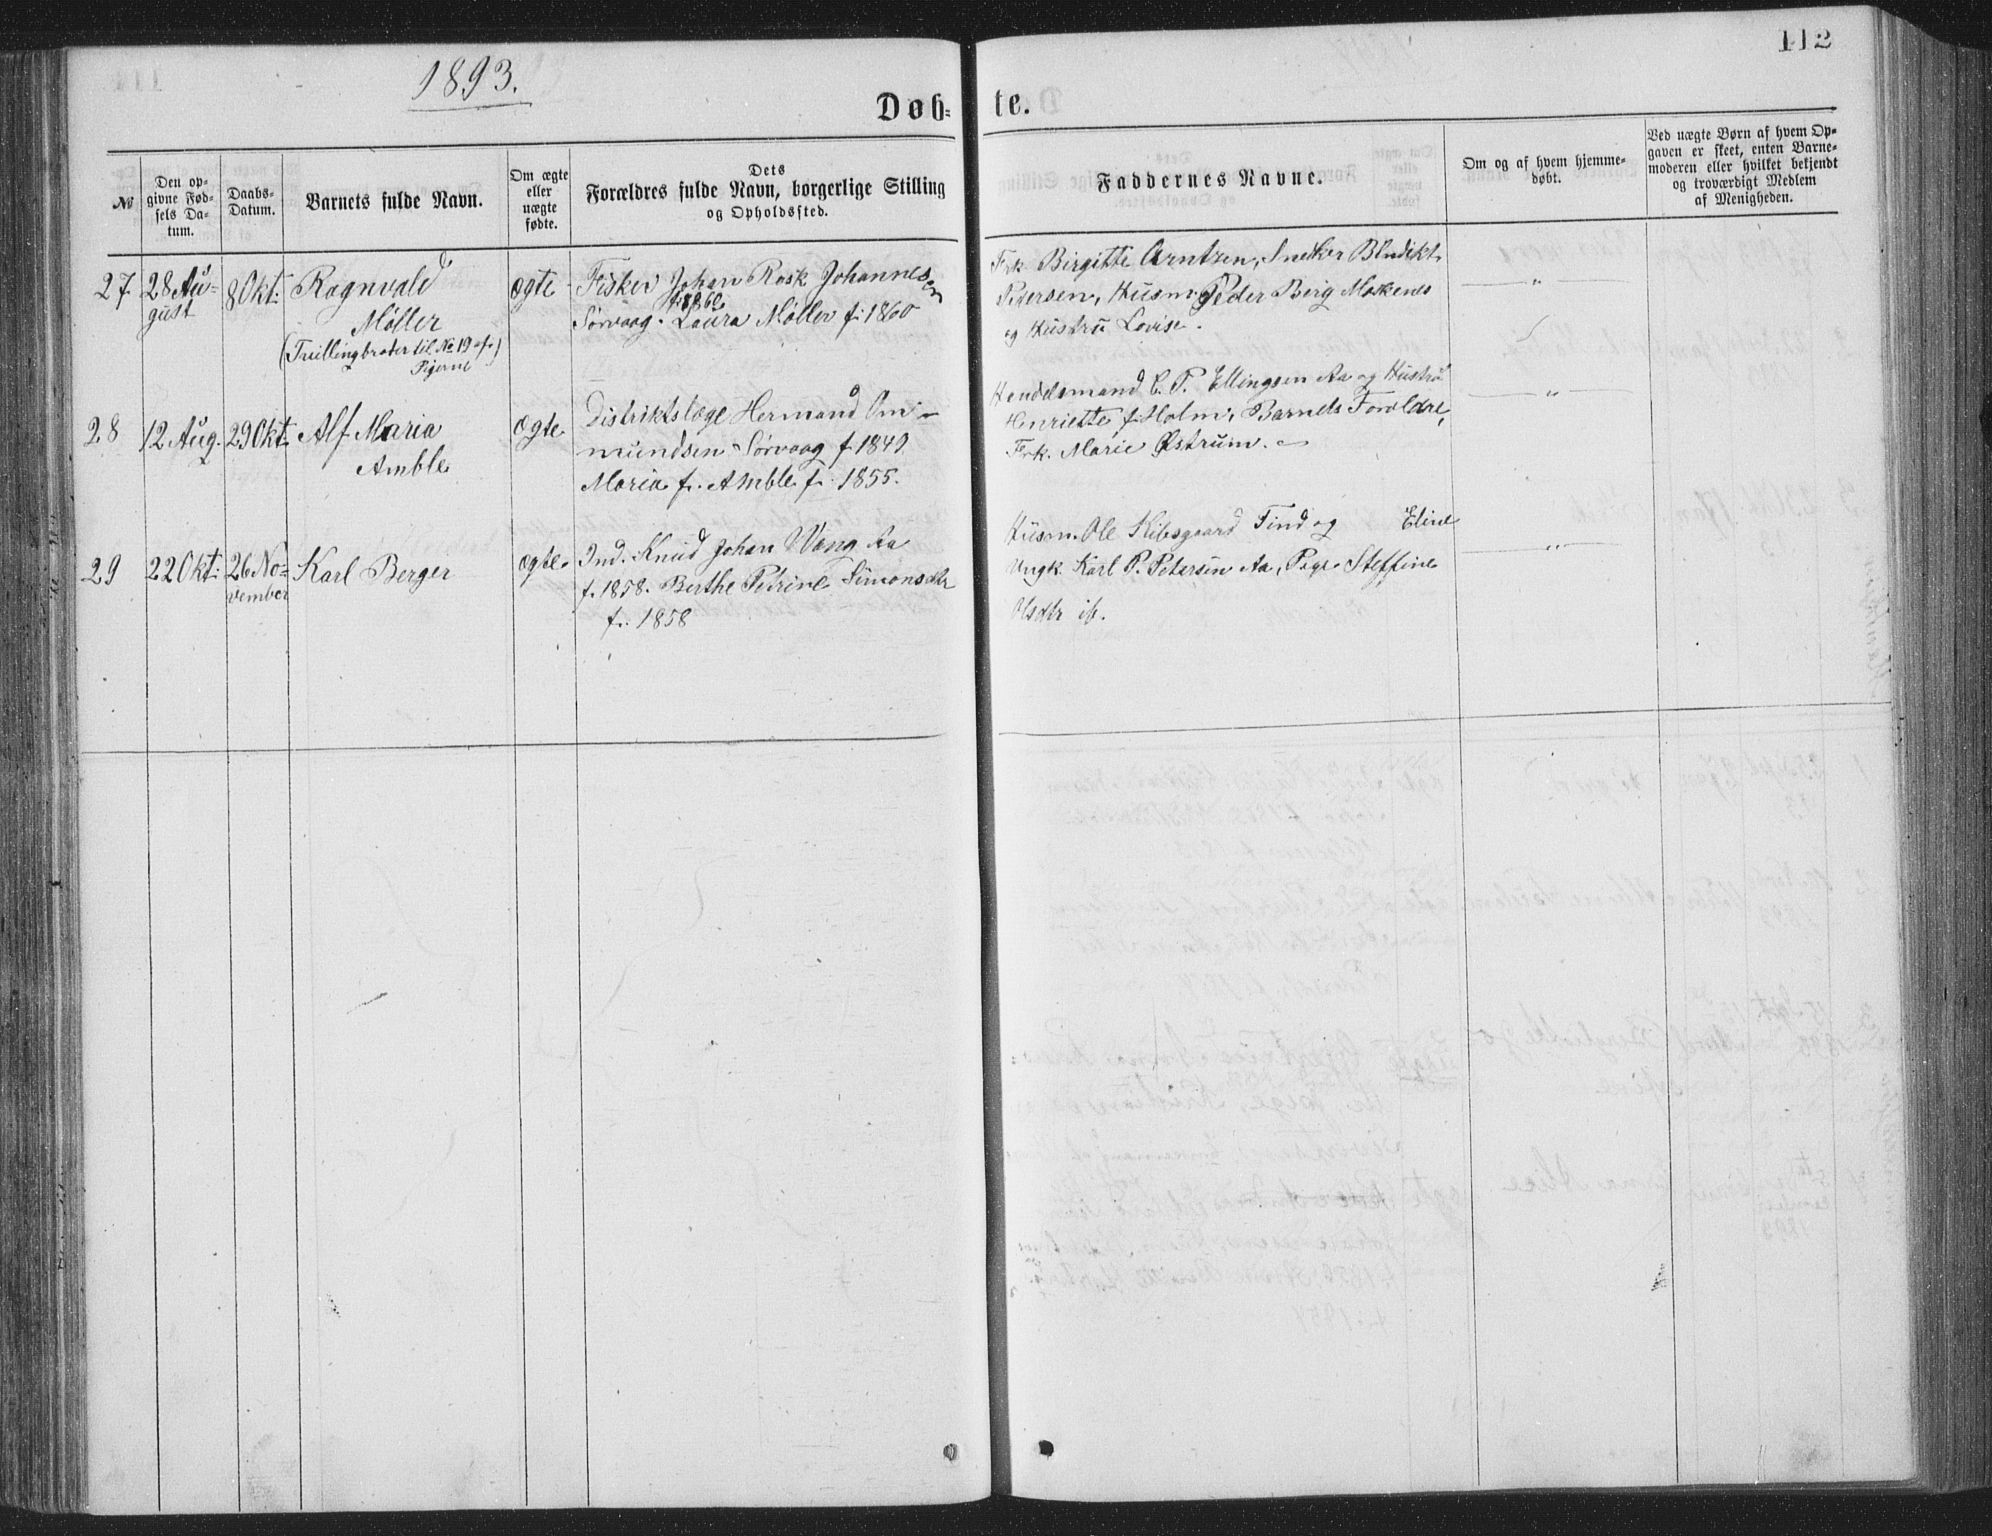 1893.
112
Døb-
te.
№
Den op-
givne Fød-
sels Da-
tum.
Daabs-
Datum.
Barnets fulde Navn.
Om ægte
eller
uægte
fødte.
Dets
Forældres fulde Navn, borgerlige Stilling
og Opholdssted.
Faddernes Navne.
Om og af hvem hjemme-
døbt.
Ved uægte Børn af hvem Op-
gaven er skeet, enten Barne-
moderen eller hvilket bekjendt
og troværdigt Medlem
af Menigheden.
27
28 Au-
gust
8 Okt.
Ragnvald
Møller
(Tvillingbroder til № 19 af
Pigerne)
ægte
Fisker Johan Rask Johannesen
f. 1860
Sörvaag. Laura Møller f. 1860
Frk. Birgitte Arntzen, Snekker Bendikt
Pedersen, Husm. Peder Berg Moskenes
og Hustru Lovise.
— " —
28
12 Aug.
29 Okt.
Alf Maria
Amble
ægte
Distriktslæge Hermand Om-
mundsen Sörvaag f. 1849
Maria f. Amble f. 1855.
Handelsmand C. P. Ellingsen Aa og Hustru
Henriette f. Holm, Barnets Forældre,
Frk. Marie Østrum.
— " —
29
22 Okt.
26 No-
vember
Karl Berger
ægte
Ind. Knud Johan Wang Aa
f. 1858. Berthe Petrine Simonsdtr
f. 1858
Husm. Ole Kibsgaard Tind og Eline
Ungk. Karl P. Petersen Aa, Pige Steffine
Olsdtr ib.
— " —